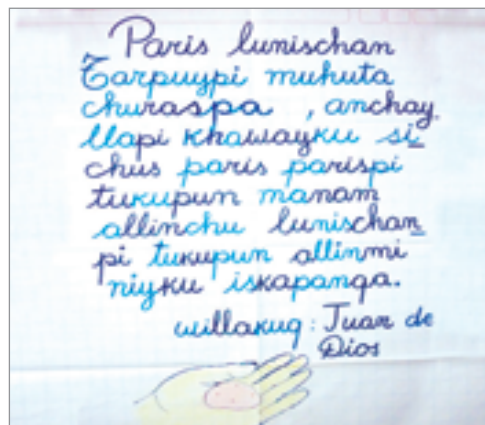 Paris lunischan
Tarpuypi muhuta
churaspa , anchay
llapi khawayku si
chus paris parispi
tukupun manam
allinchu lunischan
pi tukupun allinmi
niyku iskapanqa.
willakuq : Juan de
Dios